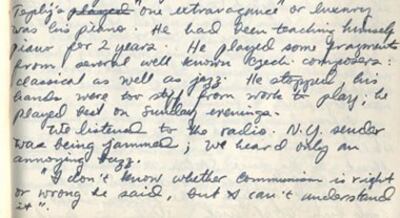 Teplý's played "one extravagance" or luxury
was his piano. He had been teaching himself
piano for 2 years. He played some fragments
from several well known Czech composers:
classical as well as jazz. He stopped, his
hands were too stiff from work to play; he
played best on Sunday evenings.
We listened to the radio. N.Y. sender
was being jammed; we heard only an
annoying buzz.
"I don't know whether communism is right
or wrong he said, but I can't understand
it".